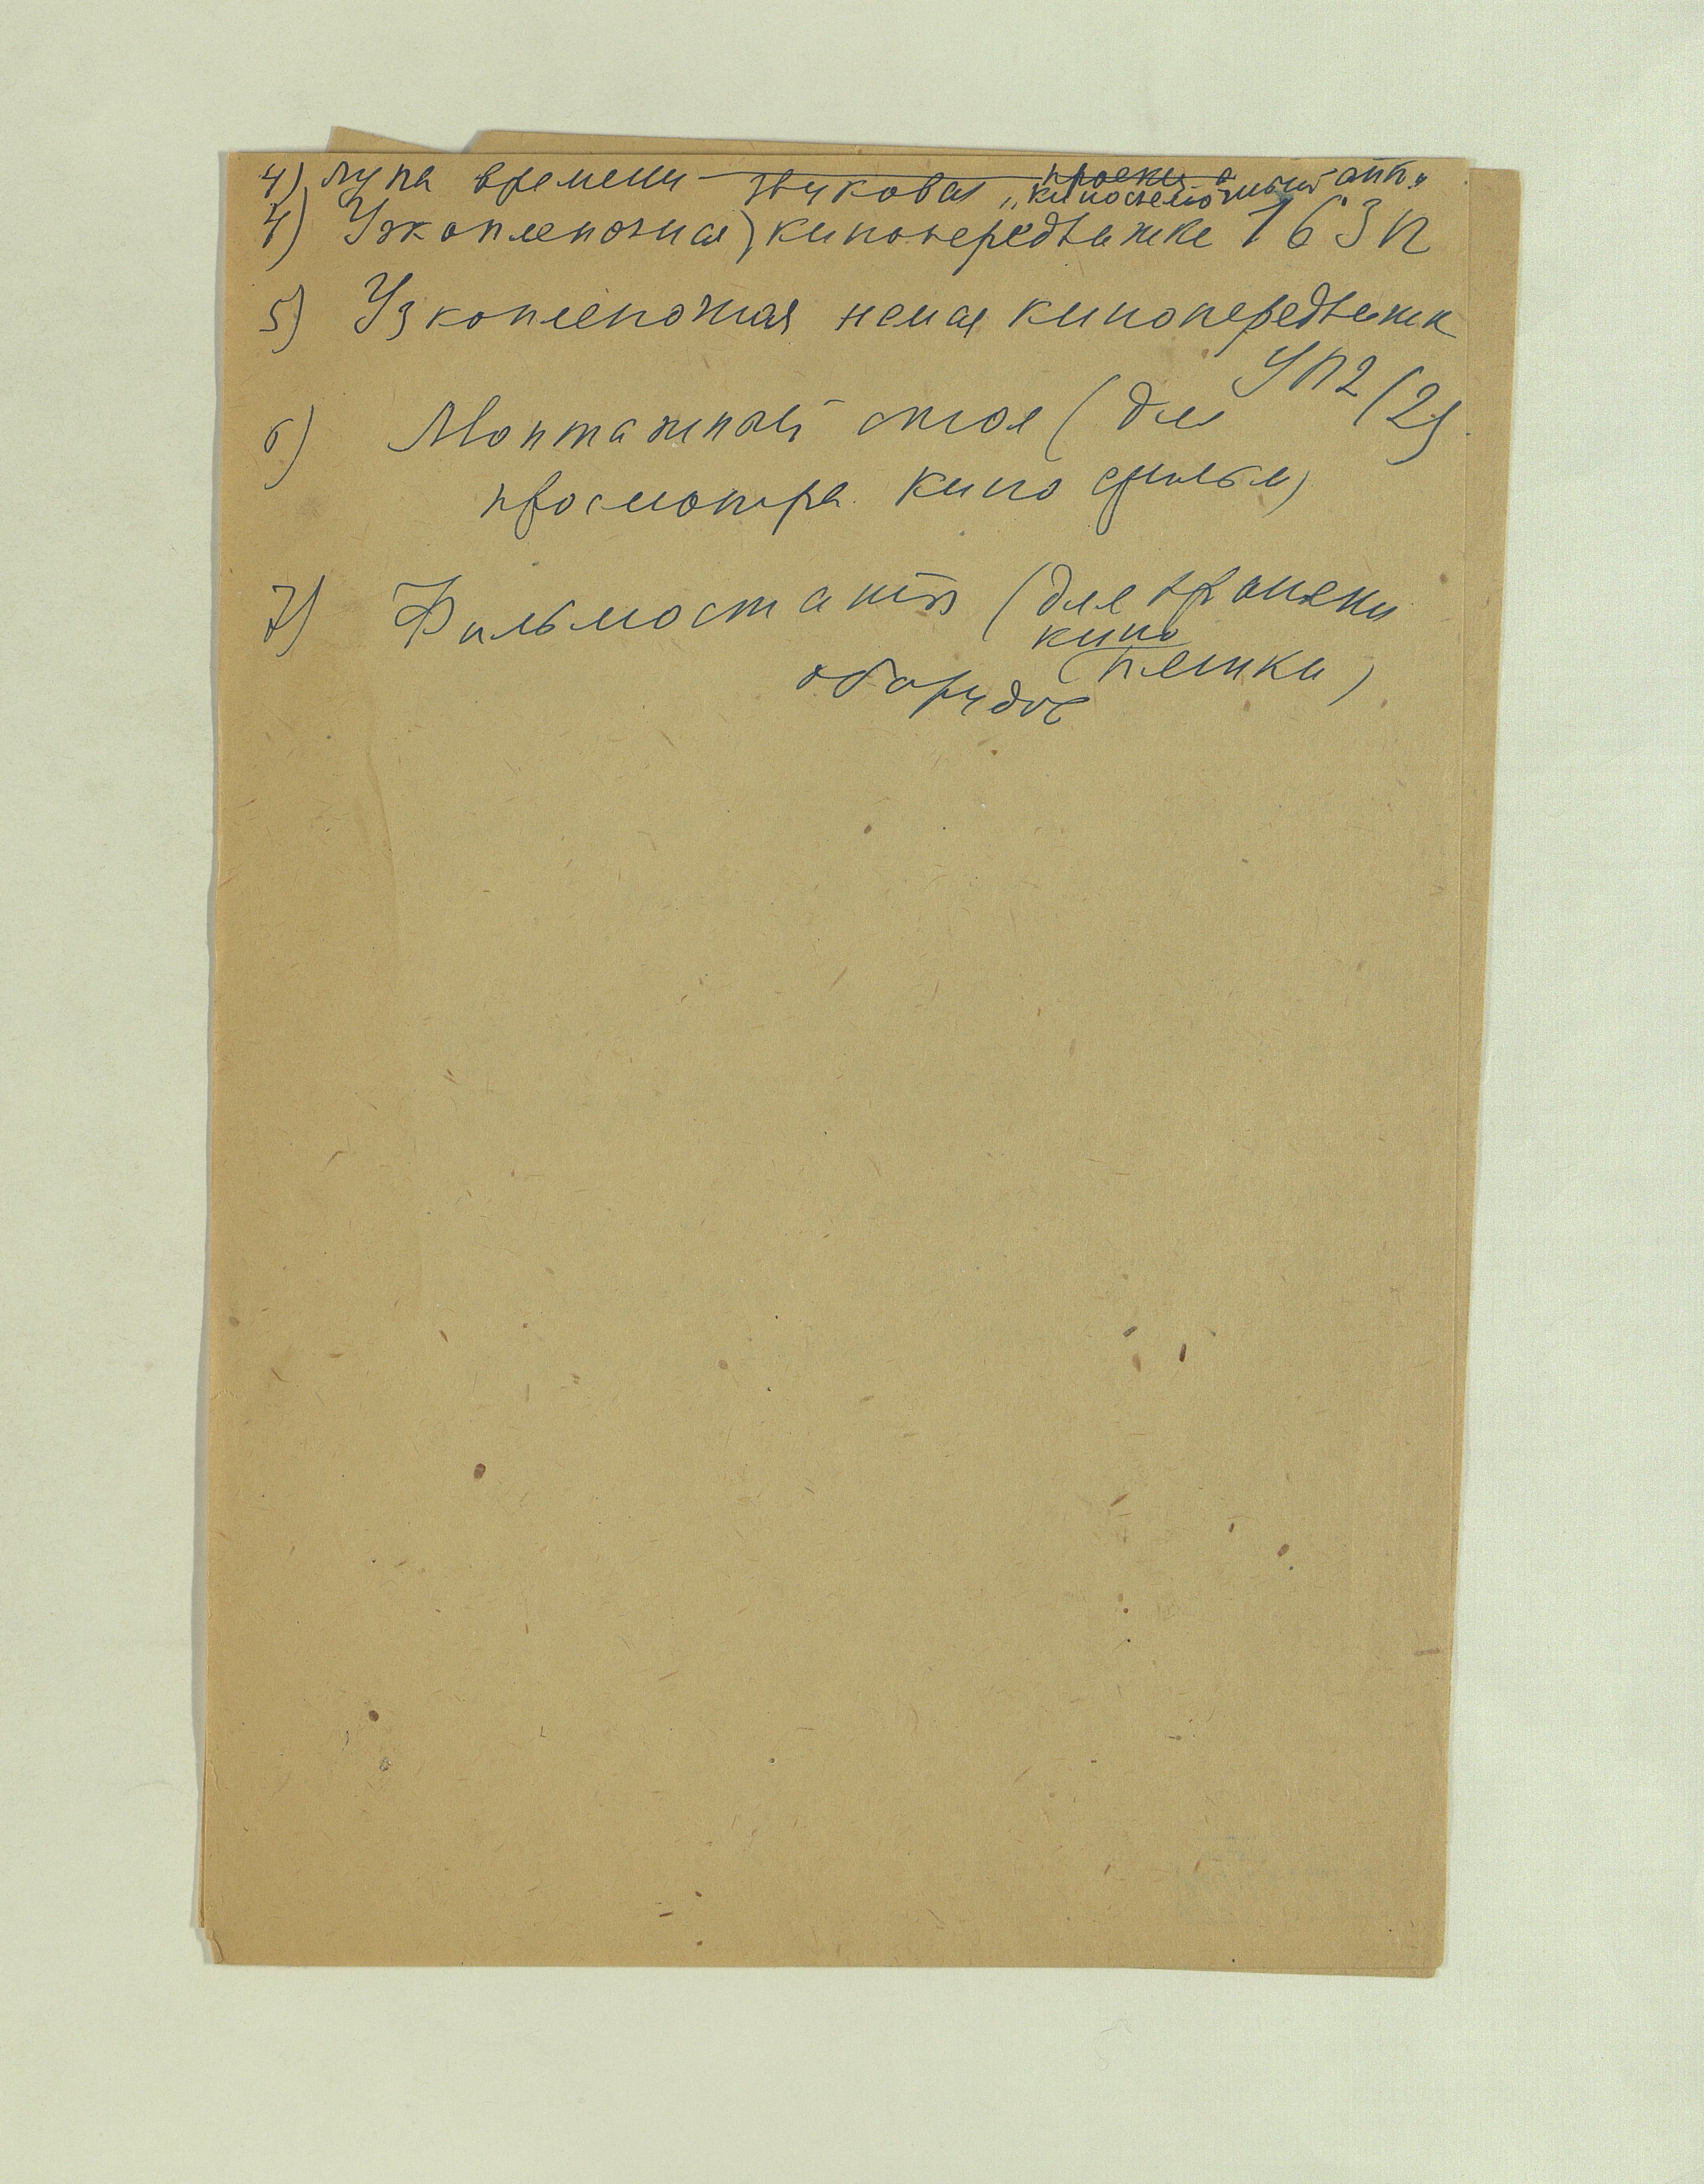 4) лупа времени — киносъемочный апп."
4) Узкопленочная звуковая кинопередвижка 16 ЗП
5) Узкопленочная немая кинопередвижк
УП2 (2)
6) Монтажный стол (для
просмотра кино фильм)
7) Фильмостаты (для хранени
кино
пленки)
оборудов